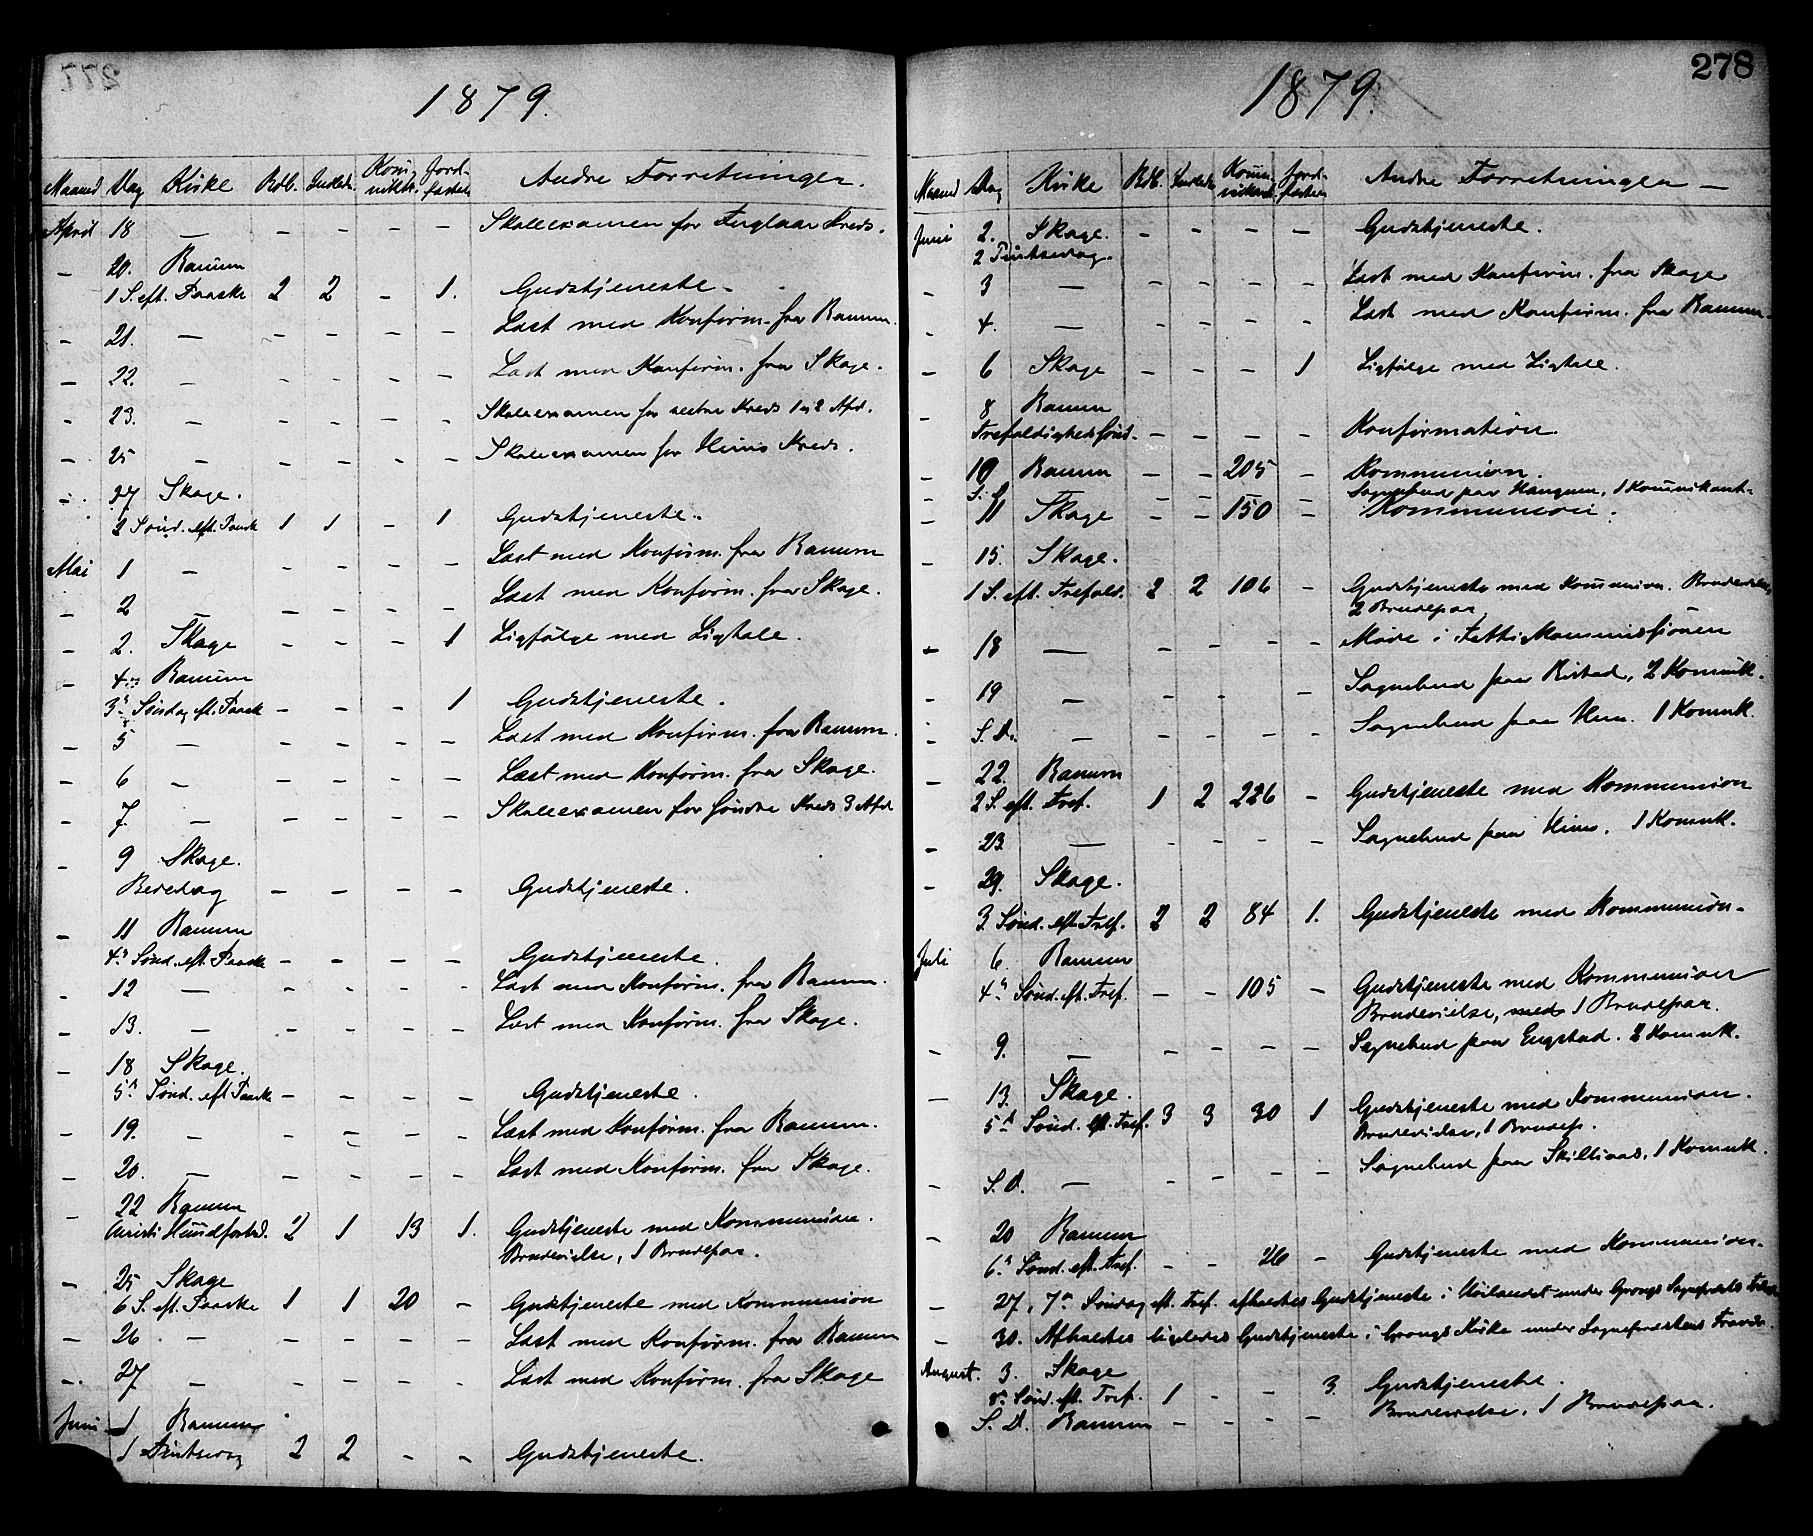 1879.
Maaned Dag Kirke Rdb. Indleds. Kommunikts. Jordfæstels. Andre Forretninger.
April 18 — - - - - Skoleexamen for Kreds.
- 20. Ranum
1 S. eft. Paaske 2 2 - 1. Gudstjeneste -
- 21. — - - - - Læst med Konfirm. fra Ranum.
- 22. - - - - - Læst med Konfirm. fra Skage.
- 23. - - - - - Skoleexamen for Kreds 1 og 2 Afd.
- 25 - - - - - Skoleexamen for Hiims Kreds.
- 27 Skage.
2 Sønd. eft. Paask 1 1 - 1 Gudstjeneste.
Mai 1 - - - - - Læst med Konfirm. fra Ranum
- 2 - - - - - Læst med Konfirm. fra Skage.
- 2. Skage - - - 1 Ligfølge med Ligtale.
- 4 Ranum
3die Søndag eft. Paask - - - 1 Gudstjeneste.
- 5 - - - - - Læst med Konfirm. fra Ranum.
- 6 - - - - - Læst med Konfirm. fra Skage.
- 7. - - - - - Skoleexamen for søndre Kreds 3 Afd
- 9 Skage.
Bededag - - - - Gudstjeneste.
- 11 Ranum
4de Sønd. eft. Paaske - - - - Gudstjeneste.
- 12 - - - - - Læst med Konfirm. fra Ranum.
- 13. - - - - - Læst med Konfirm. fra Skage.
- 18 Skage.
5te Sønd. eft Paaske - - - - Gudstjeneste.
- 19. - - - - - Læst med Konfirm. fra Ranum.
- 20. - - - - - Læst med Konfirm. fra Skage.
- 22 Ranum
Christi Himmelfartsd. 2 1 13 1. Gudstjeneste med Kommunion.
Brudevielse, 1 Brudepar.
- 25 Skage
6 S. eft. Paaske 1 1 20 - Gudstjeneste med Kommunion
- 26 - - - - - Læst med Konfirm. fra Ranum
- 27 - - - - - Læst med Konfirm. fra Skage
Juni 1 Ranum
1 Pintsedag 2 2 - - Gudstjeneste.
278
1879.
Maaned Dag Kirke Rdb. Indleds Kommunikant. Jordfæstels Andre Forretninger —
Juni 2. Skage.
2 Pintsedag. - - - - Gudstjeneste.
- 3 — - - - - Læst med Konfirm. fra Skage
- 4. — - - - - Læst med Konfirm. fra Ranum.
- 6 Skage - - - 1 Ligfølge med Ligtale.
- 8 Ranum
Trefoldighedssønd. - - - - Konfirmation.
- 10 Ranum - - 205 - Kommunion.
S. D. - - - - Sognebud paa 1 Kommunikant.
- 11 Skage - - 150 - Kommunion.
- 15. Skage.
1 S. eft. Trefold. 2 2 106 - Gudstjeneste med Kommunion. Brudevielse,
2 Brudepar
- 18 — - - - - Møde i Fattikommissionen
- 19 - - - - - Sognebud paa Ristad, 2 Kommunik.
- S. D. - - - - - Sognebud paa 1 Kommunik.
- 22 Ranum
2 S. eft. Tref. 1 2 226 - Gudstjeneste med Kommunion
- 23 — - - - - Sognebud paa Hiim. 1 Kommunik.
- 29. Skage.
3 Sønd. eft. Tref. 2 2 84 1. Gudstjeneste med Kommunion.
Juli 6. Ranum
4de Sønd. eft. Tref. - - 105 - Gudstjeneste med Kommunion
Brudevielse, med 1 Brudepar.
- 9. - - - - - Sognebud paa Engstad. 2 Kommunik.
- 13. Skage.
5te Sønd. eft. Tref. 3 3 30 1 Gudstjeneste med Kommunion.
Brudevielse, 1 Brudep.
- S. D. — - - - - Sognebud paa 1 Kommunik.
- 20 Ranum
6te Sønd. eft. Tref. - - 26 - Gudstjeneste med Kommunion.
- 27, 7de Søndag eft. Tref. afholdtes Gudstjeneste i Høilandet under Grongs Sognepræsts
- 30. Afholdtes ligeledes Gudstjeneste i Grongs Kirke under Sognepræstens Fravær.
August. 3. Skage
8de Sønd. eft. Tref. 1 - - 3. Gudstjeneste.
S. D. Ranum - - - - Brudevielse. 1 Brudepar.